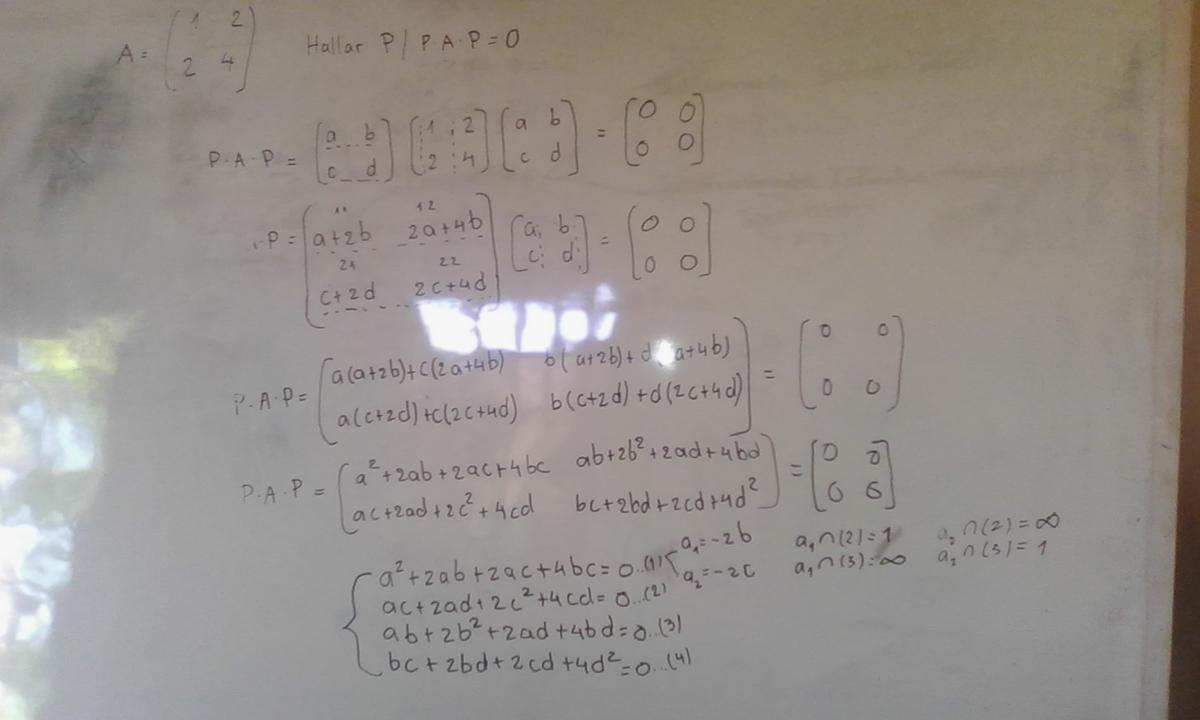 A = ( 1 2 ; 2 4 ) Hallar P / P.A.P = 0
P.A.P = [ a b ; c d ] [ 1 2 ; 2 4 ] [ a b ; c d ] = [ 0 0 ; 0 0 ]
.P = [ 11 a+2b 12 2a+4b ; 21 c+2d 22 2c+4d ] [ a b ; c d ] = [ 0 0 ; 0 0 ]
P.A.P = [ a(a+2b)+c(2a+4b) b(a+2b)+d( a+4b) ; a(c+2d)+c(2c+4d) b(c+2d)+d(2c+4d) ] = [ 0 0 ; 0 0 ]
P.A.P = ( a²+2ab+2ac+4bc ab+2b²+2ad+4bd ; ac+2ad+2c²+4cd bc+2bd+2cd+4d² ) = [ 0 0 ; 0 0 ]
a²+2ab+2ac+4bc=0..(1) a₁=-2b a₁∩(2)=1 a₂∩(2)=∞
a₂=-2c a₁∩(3)=∞ a₂∩(3)=1
ac+2ad+2c²+4cd=0..(2)
ab+2b²+2ad+4bd=0..(3)
bc+2bd+2cd+4d²=0..(4)